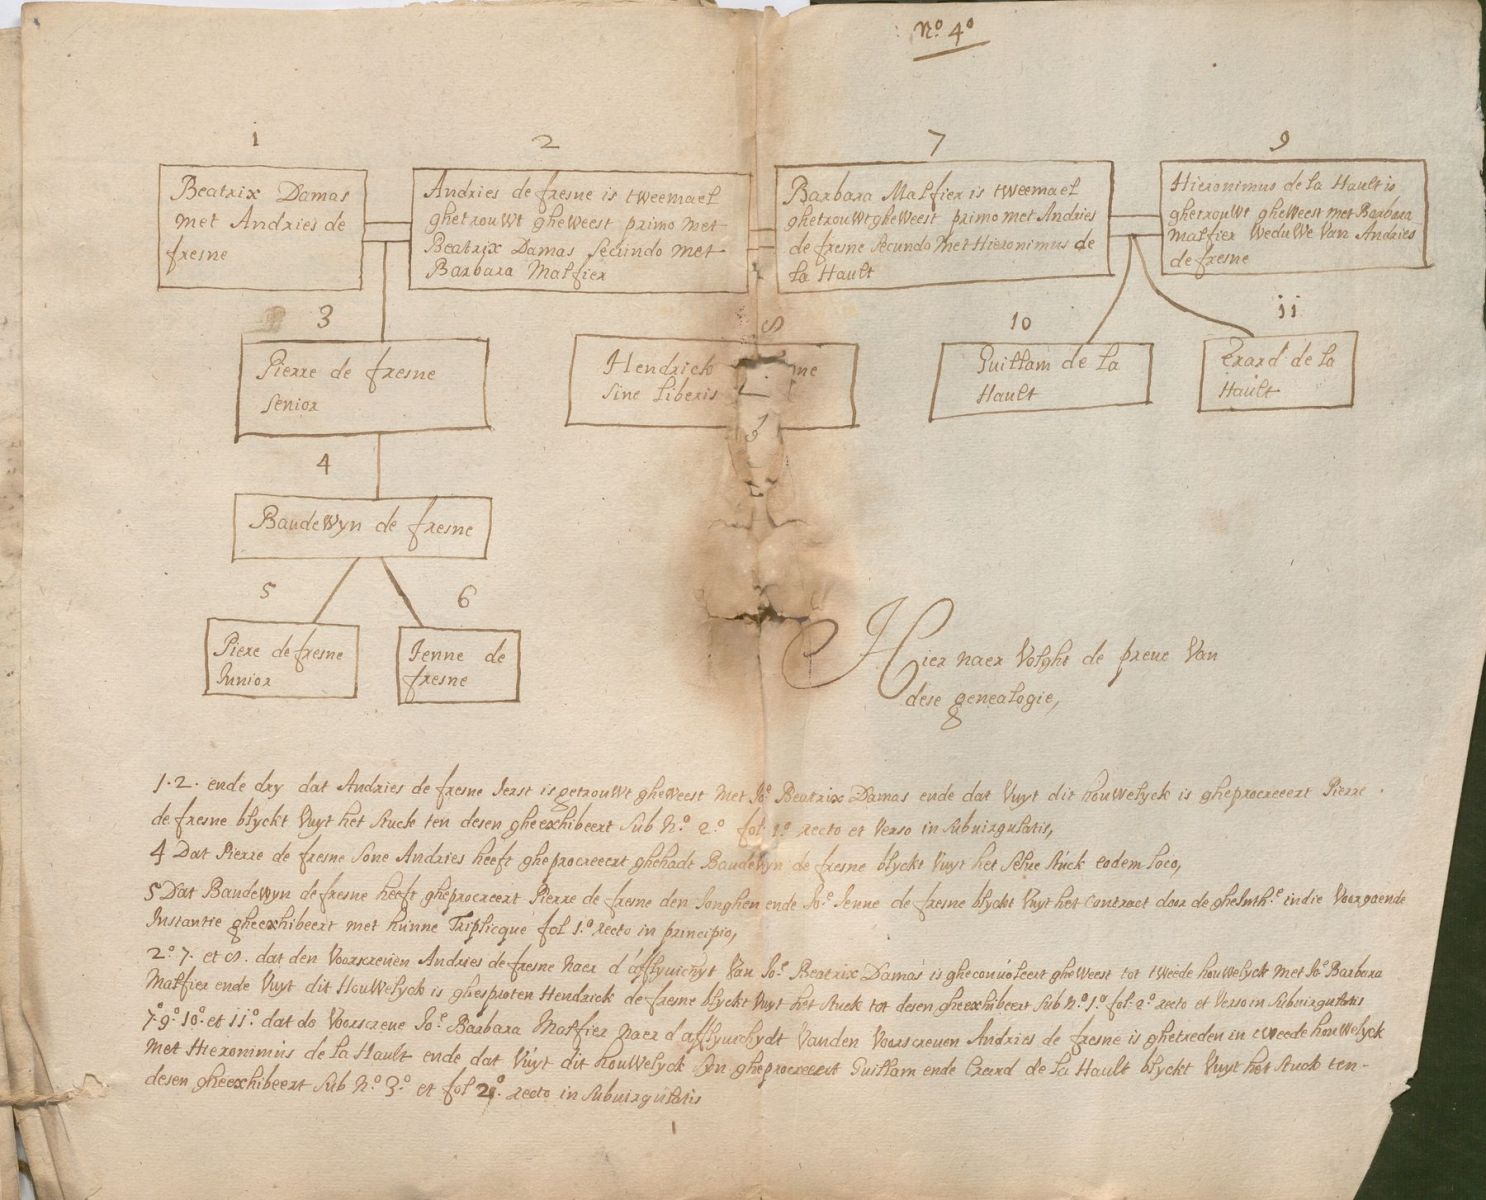 N.º 4º
1
Beatrix Damas
met Andries de
fresne
2
Andries de fresne is tweemael
ghetrouwt gheweest primo met
Beatrix Damas secundo met
Barbara Malfier
7
Barbara Malfier is tweemael
ghetrouwt gheweest primo met Andries
de fresne secundo met Hieronimus de
la Hault
9
Hieronimus de la Hault is
ghetrouwt gheweest met Barbara
Malfier weduwe van Andries
de fresne
3
Pierre de fresne
senior
8
Hendrick ne
sine liberis
10
Guillam de la
Hault
ii
Erard de la
Hault
4
Baudewyn de fresne
5
Piere de fresne
Junior
6
Jenne de
fresne
Hier naer volght de preue van
dese genealogie,
1. 2. ende dry dat Andries de fresne ierst is getrouwt gheweest met Jo.e Beatrix Damas ende dat vuyt dit houwelyck is gheprocreeert Pierre
de fresne blyckt vuyt het stuck ten desen gheexhibeert sub N.º 2.º fol. 1.º recto et verso in subuirgulatis,
4 Dat Pierre de fresne sone Andries heeft gheprocreeert ghehadt Baudewyn de fresne blyckt vuyt het selue stuck eodem loco,
5 Dat Baudewyn de fresne heeft gheprocreert Pierre de fresne den Jonghen ende Jo.e Jenne de fresne blyckt vuyt het contract door de gheInth.e indie voorgaende
Instantie gheexhibeert met hunne Triplicque fol 1.º recto in principio,
2.º 7. et 8. dat den voorscreuen Andries de fresne naer d'afflyuichyt van Jo.e Beatrix Damas is gheconuoleert gheweest tot tweede houwelyck met Jo.e Barbara
Malfier ende vuyt dit Houwelyck is ghesproten Hendrick de fresne blyckt vuyt het stuck tot desen gheexhibeert sub N.º 1.º fol. 2.º recto et verso in subuirgulatis
7.º 9.º 10.º et 11.º dat do voorscreue Jo.e Barbara Malfier naer d'afflyuichydt vanden voorscreuen Andries de fresne is ghetreden in tweede houwelyck
met Hieronimus de la Hault ende dat vuyt dit houwelyck syn gheprocreeert Guillam ende Erard de la Hault blyckt vuyt het stuck ten-
desen gheexhibeert sub N.º 3.º et fol 2.º recto in subuirgulatis